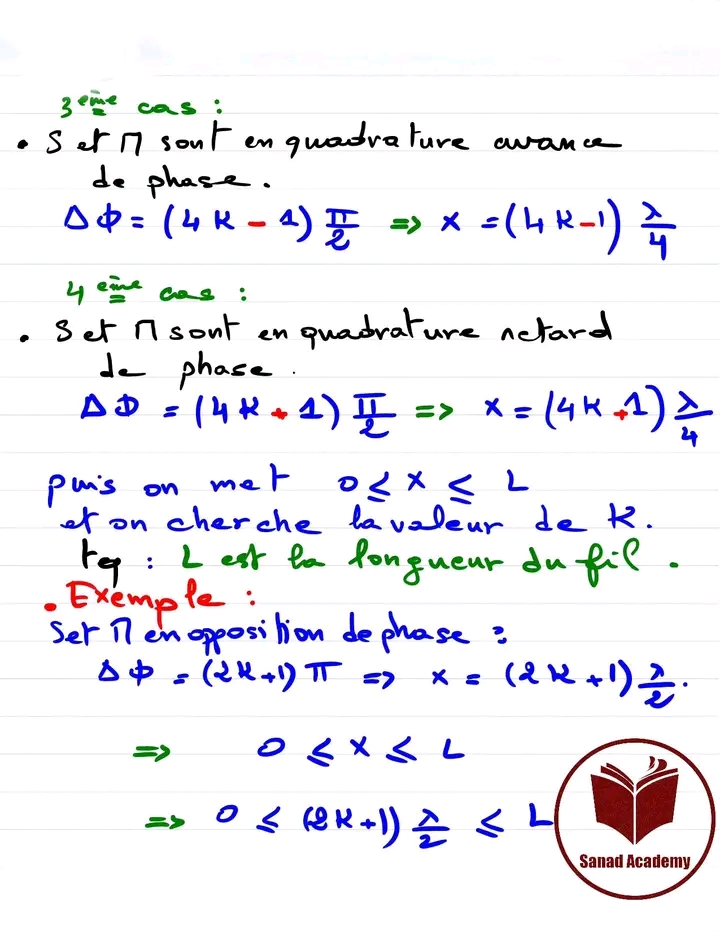 3ème cas :
• S et M sont en quadrature avance
de phase.
Δϕ = (4K - 1) π/2 => x = (4K-1) λ/4
4ème cas :
• S et M sont en quadrature retard
de phase.
Δϕ = (4K + 1) π/2 => x = (4K+1) λ/4
puis on met 0 ≤ x ≤ L
et on cherche la valeur de K.
tq : L est la longueur du fil.
• Exemple :
S et M en opposition de phase :
Δϕ = (2K+1) π => x = (2K+1) λ/2.
=> 0 ≤ x ≤ L
=> 0 ≤ (2K+1) λ/2 ≤ L
Sanad Academy